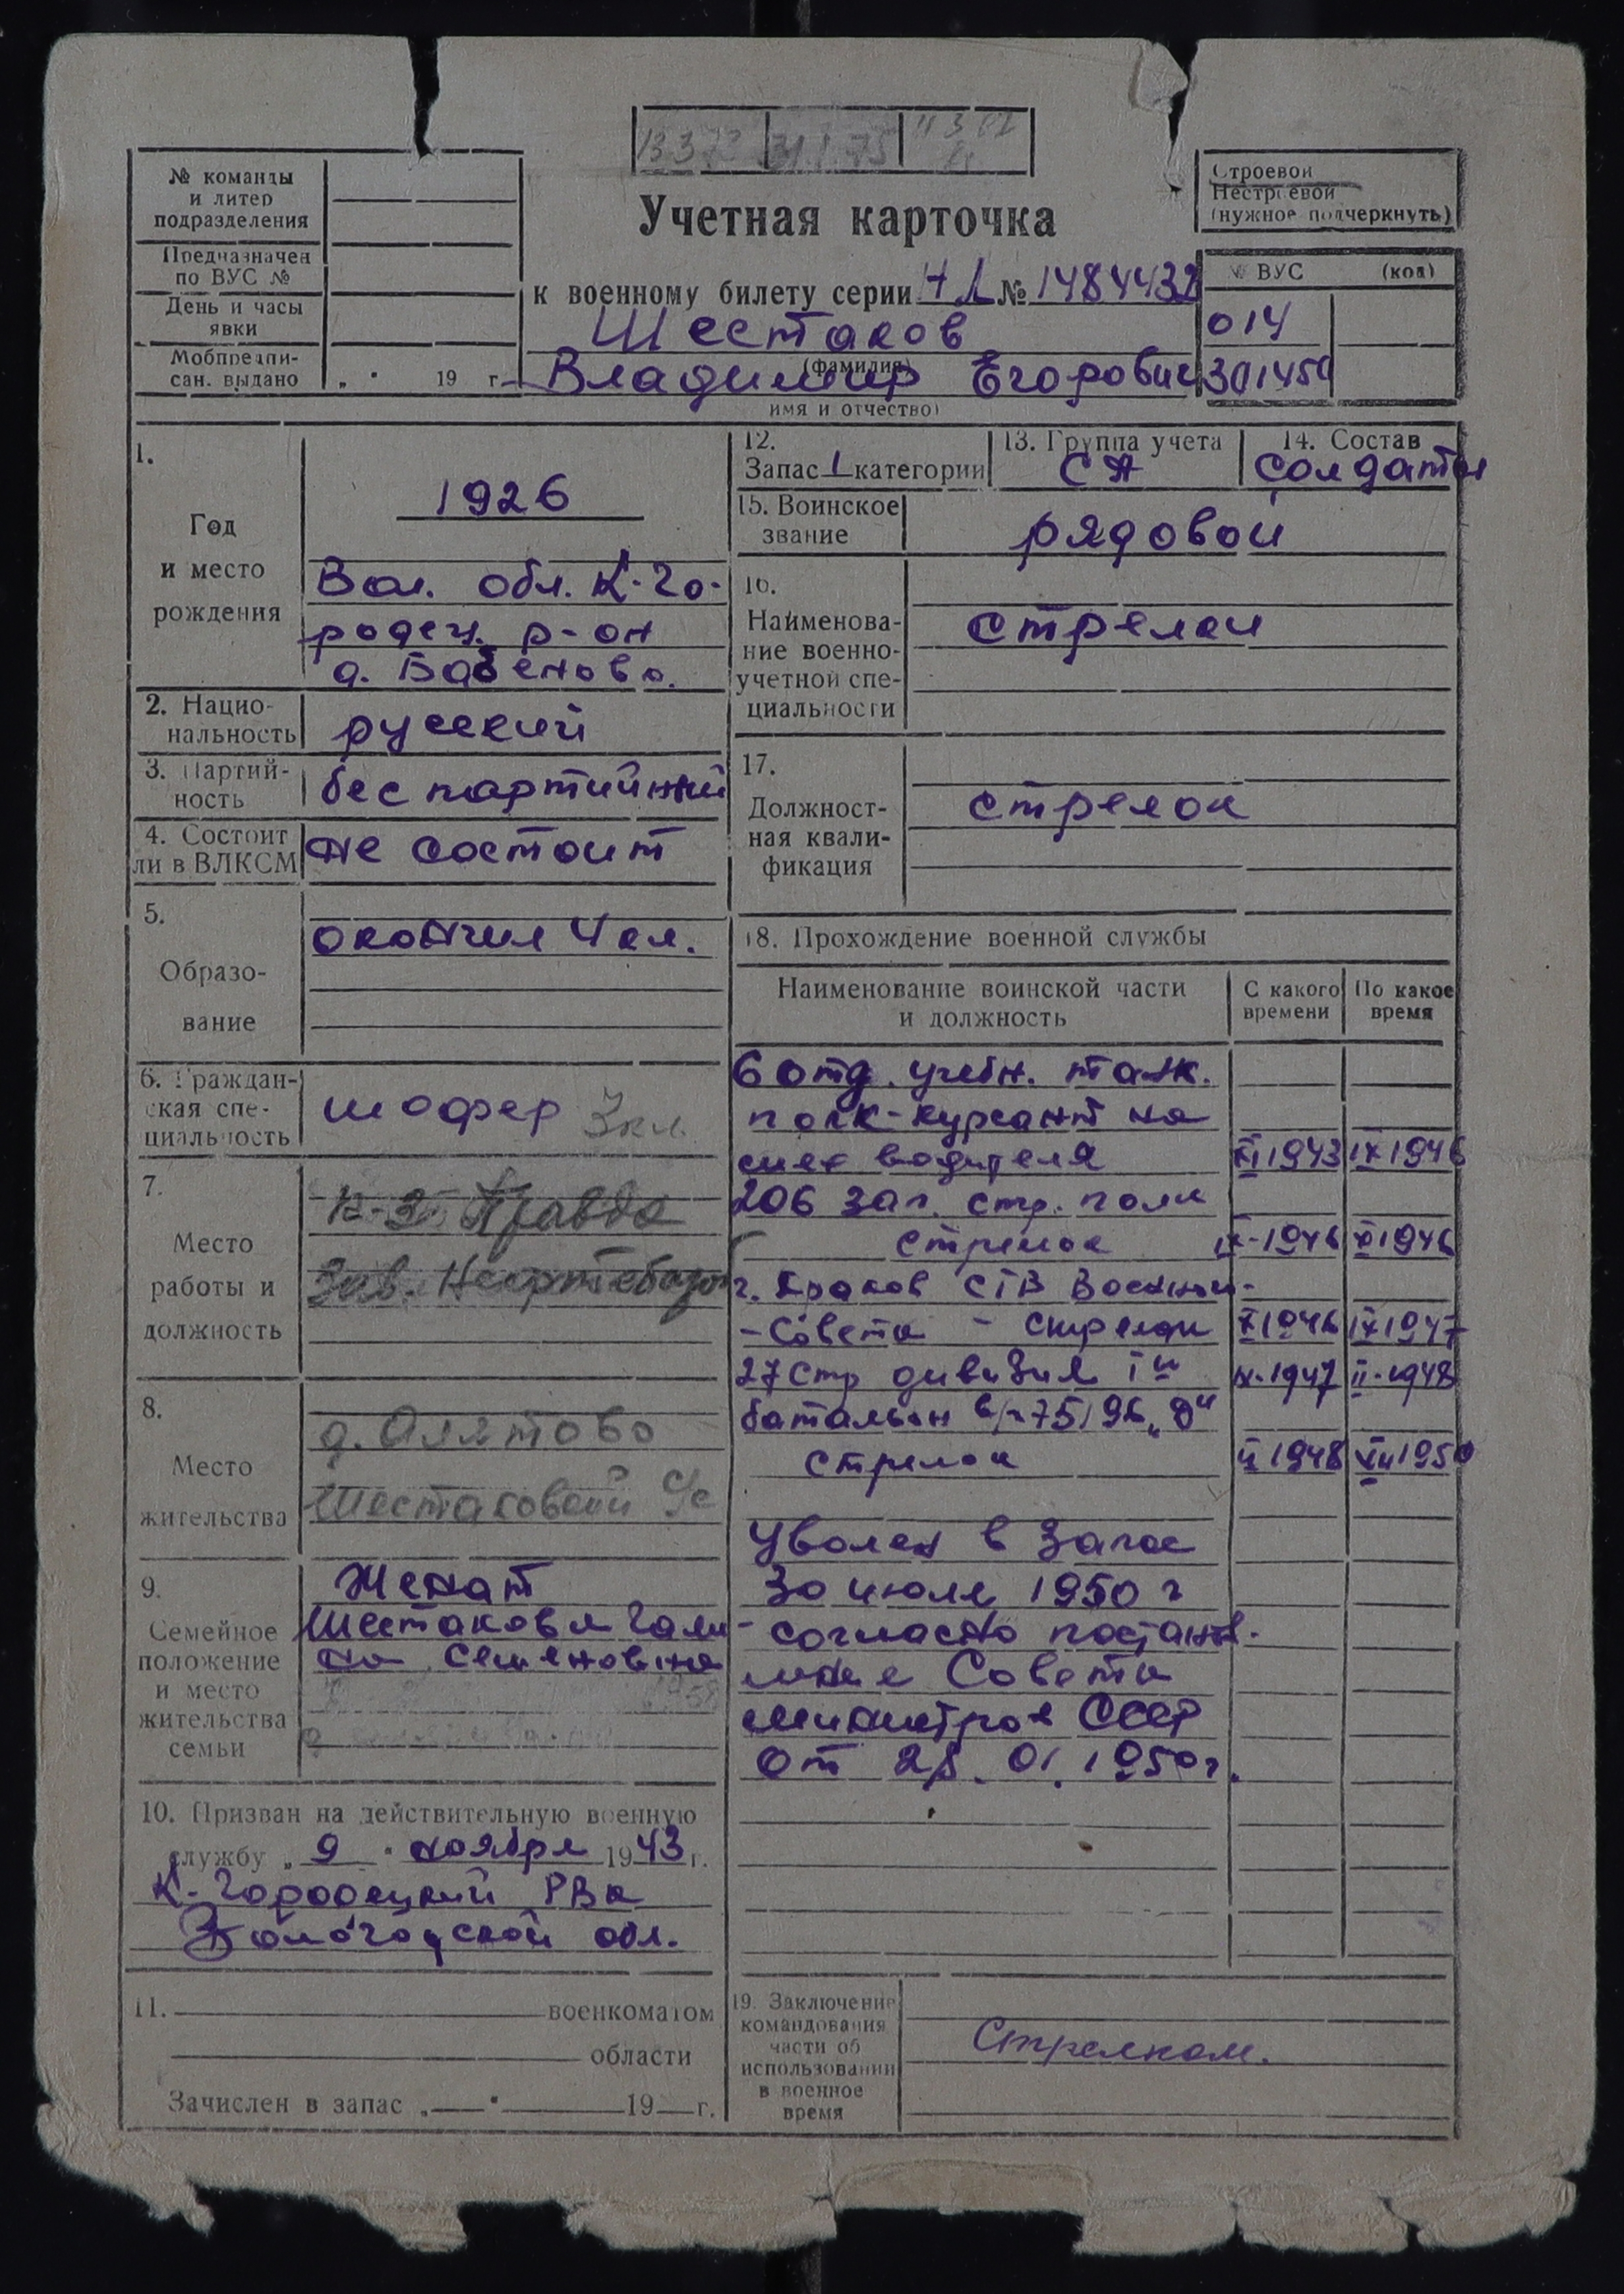 13.3.73 31.1.75
№ команды
и литер
подразделения
Предназначен
по ВУС №
День и часы
явки
Мобпредпи-
сан. выдано „ " 19 г.
Учетная карточка
к военному билету серии НЛ № 1484432
Шестаков
(фамилия)
Владимир Егорович
имя и отчество)
Строевой
Нестроевой
(нужное подчеркнуть)
№ ВУС (код)
014
301450
1.
Год
и место
рождения
1926
Вол. обл. К-Го-
родец. р-он
д. Бабеново.
2. Нацио-
нальность
русский
3. Партий-
ность
беспартийный
4. Состоит
ли в ВЛКСМ
не состоит
5.
Образо-
вание
окончил 4 кл.
6. Граждан-
ская спе-
циальность
шофер 3 кл
7.
Место
работы и
должность
к-з Правда
Зав. Нефтебазой
8.
Место
жительства
д. Алятово
Шестаковский С/с
9.
Семейное
положение
и место
жительства
семьи
Женат
Шестакова Гали-
на Семеновна
10. Призван на действительную военную
службу „ 9 " ноября 1943 г.
К-Городецкий РВК
Вологодской обл.
11. военкоматом
области
Зачислен в запас „ " 19 г.
12.
Запас 1 категории
13. Группа учета
СА
14. Состав
солдаты
15. Воинское
звание
рядовой
16.
Наименова-
ние военно-
учетной спе-
циальности
стрелки
17.
Должност-
ная квали-
фикация
стрелок
18. Прохождение военной службы
Наименование воинской части
и должность
С какого
времени
По какое
время
6 отд. учебн. танк.
полк-курсант на
мех водителя XI 1943 IX 1946
206 зап. стр. полк
стрелок IX-1946 X 1946
г. Краков СГВ Военный-
-Совета - стрелок X 1946 IX 1947
27 Стр дивизия 1й IX-1947 II-1948
батальон в/ч 75196 „Д"
стрелок II 1948 VII 1950
Уволен в запас
30 июля 1950 г
согласно постанв-
ление Совета
министров СССР
от 28.01.1950 г.
19. Заключение
командования
части об
использовании
в военное
время
Стрелком.